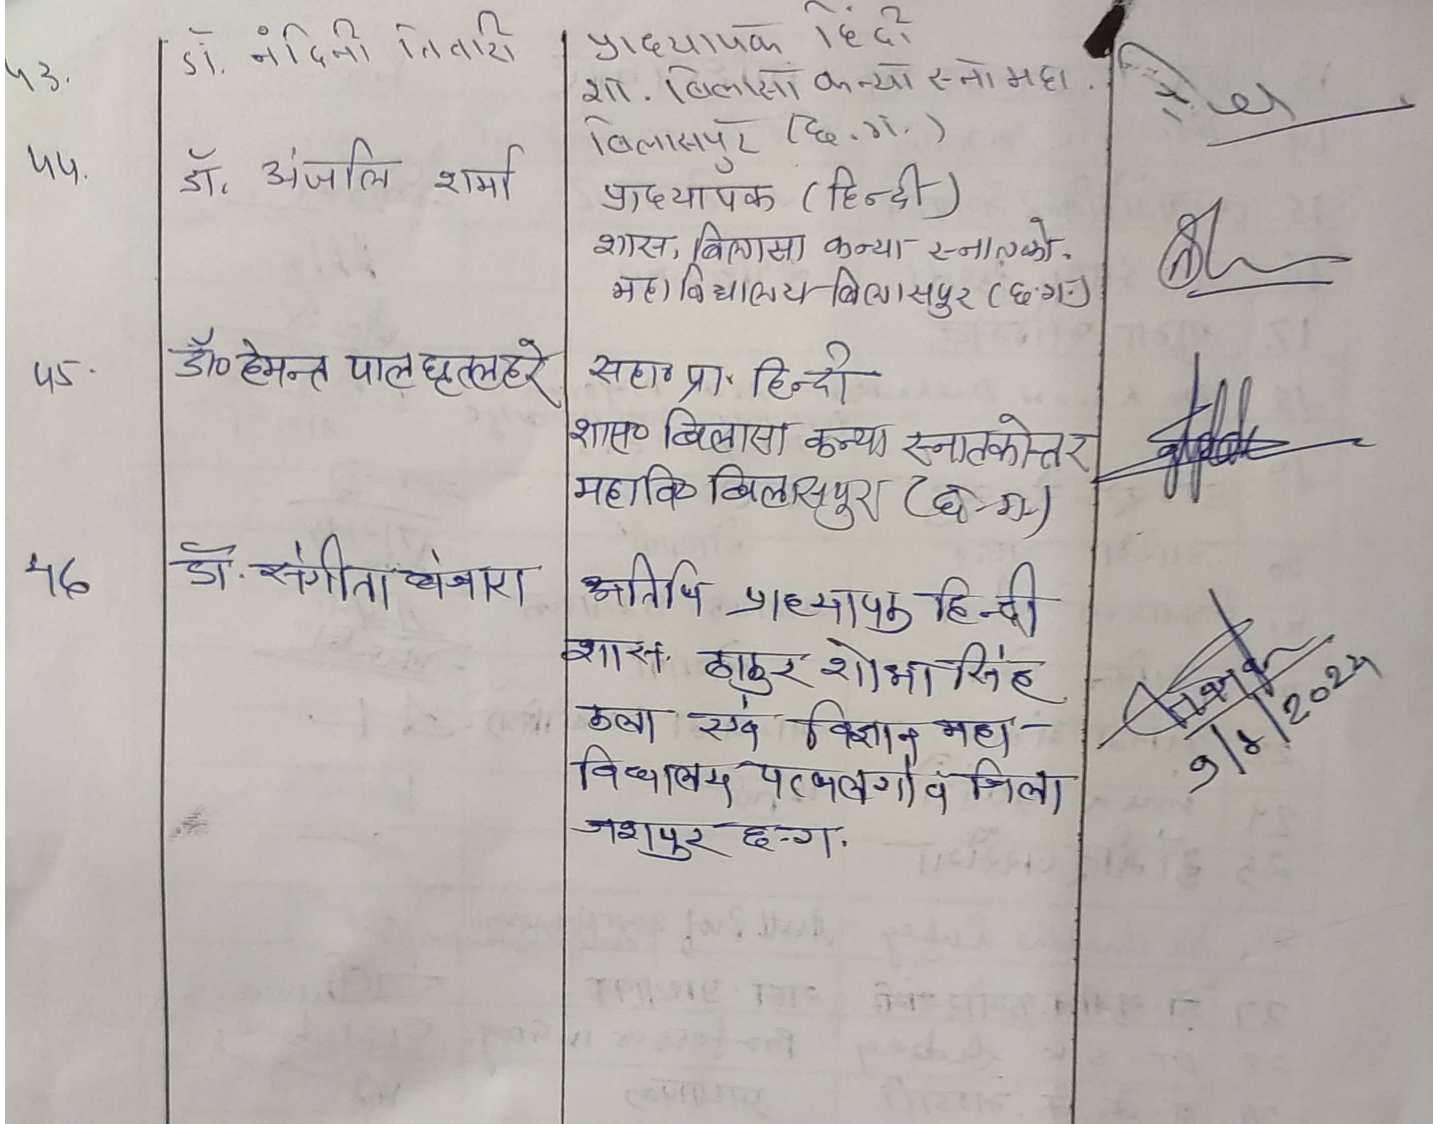 43.
डॉ. नंदिनी तिवारी
प्राध्यापक हिंदी
शा. बिलासा कन्या स्ना महा.
बिलासपुर (छ.ग.)
44.
डॉ. अंजलि शर्मा
प्राध्यापक (हिन्दी)
शास. बिलासा कन्या स्नातको.
महाविद्यालय बिलासपुर (छ.ग.)
45.
डॉ० हेमन्त पाल घृतलहरे
सहा० प्रा. हिन्दी
शास० बिलासा कन्या स्नातकोत्तर
महावि० बिलासपुर (छ.ग.)
46
डॉ. संगीता बंजारा
अतिथि प्राध्यापक हिन्दी
शास. ठाकुर शोभा सिंह
कला एवं विज्ञान महा-
विद्यालय पत्थलगांव जिला
जशपुर छ.ग.
2024